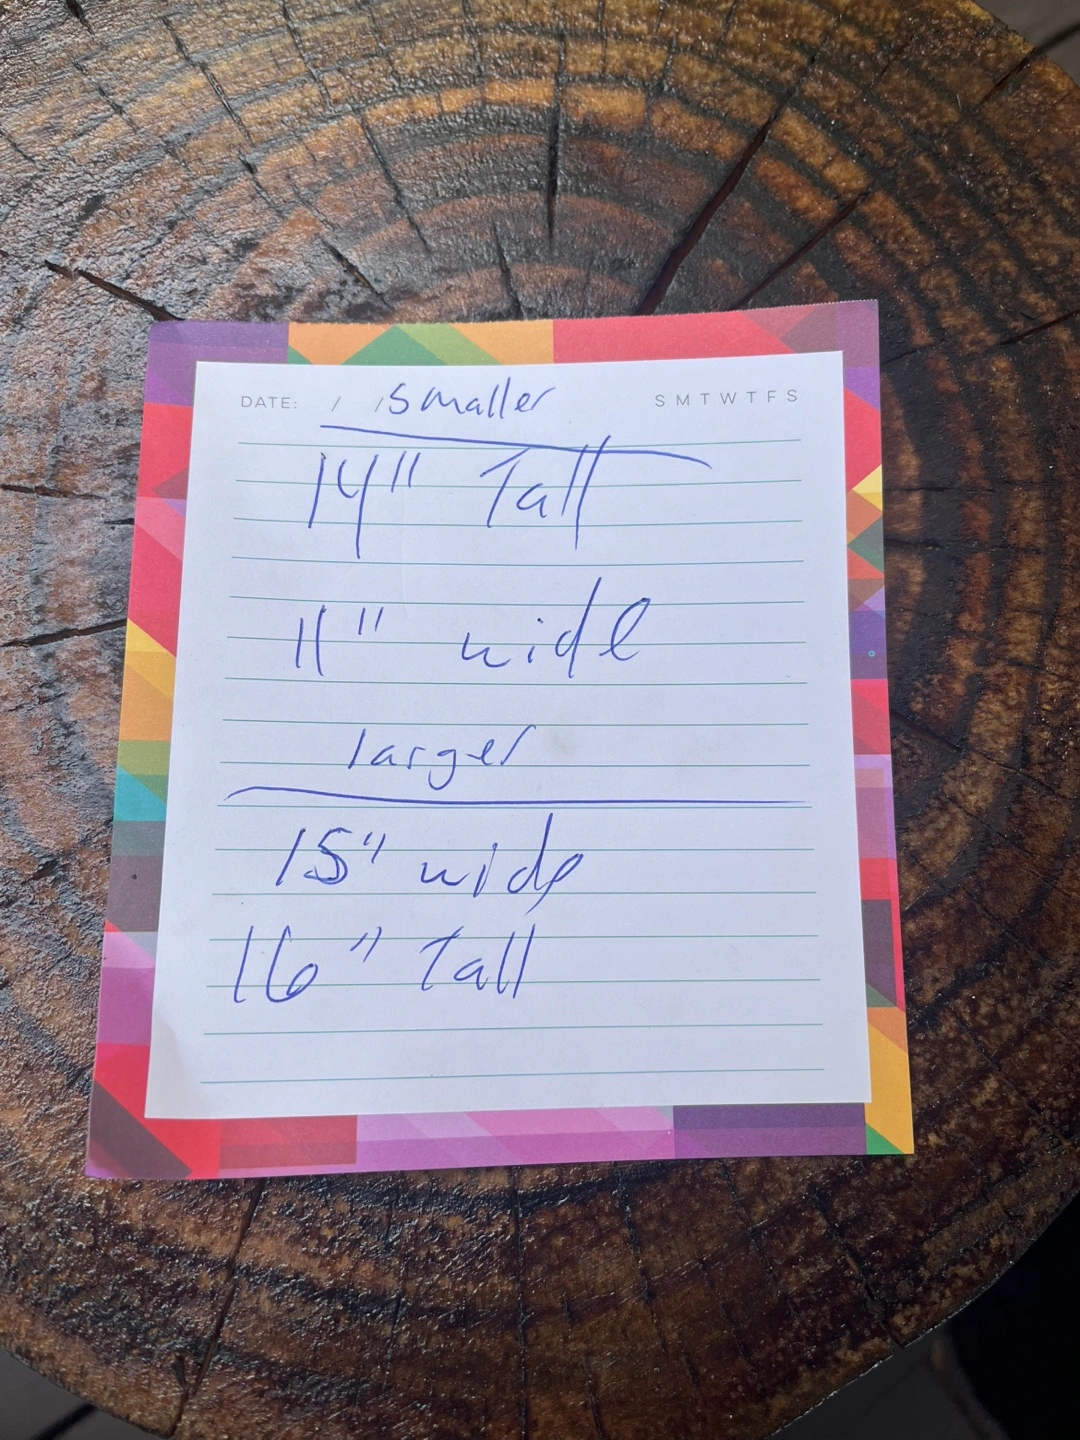 DATE: / / smaller S M T W T F S
14" Tall
11" wide
larger
15" wide
16" Tall